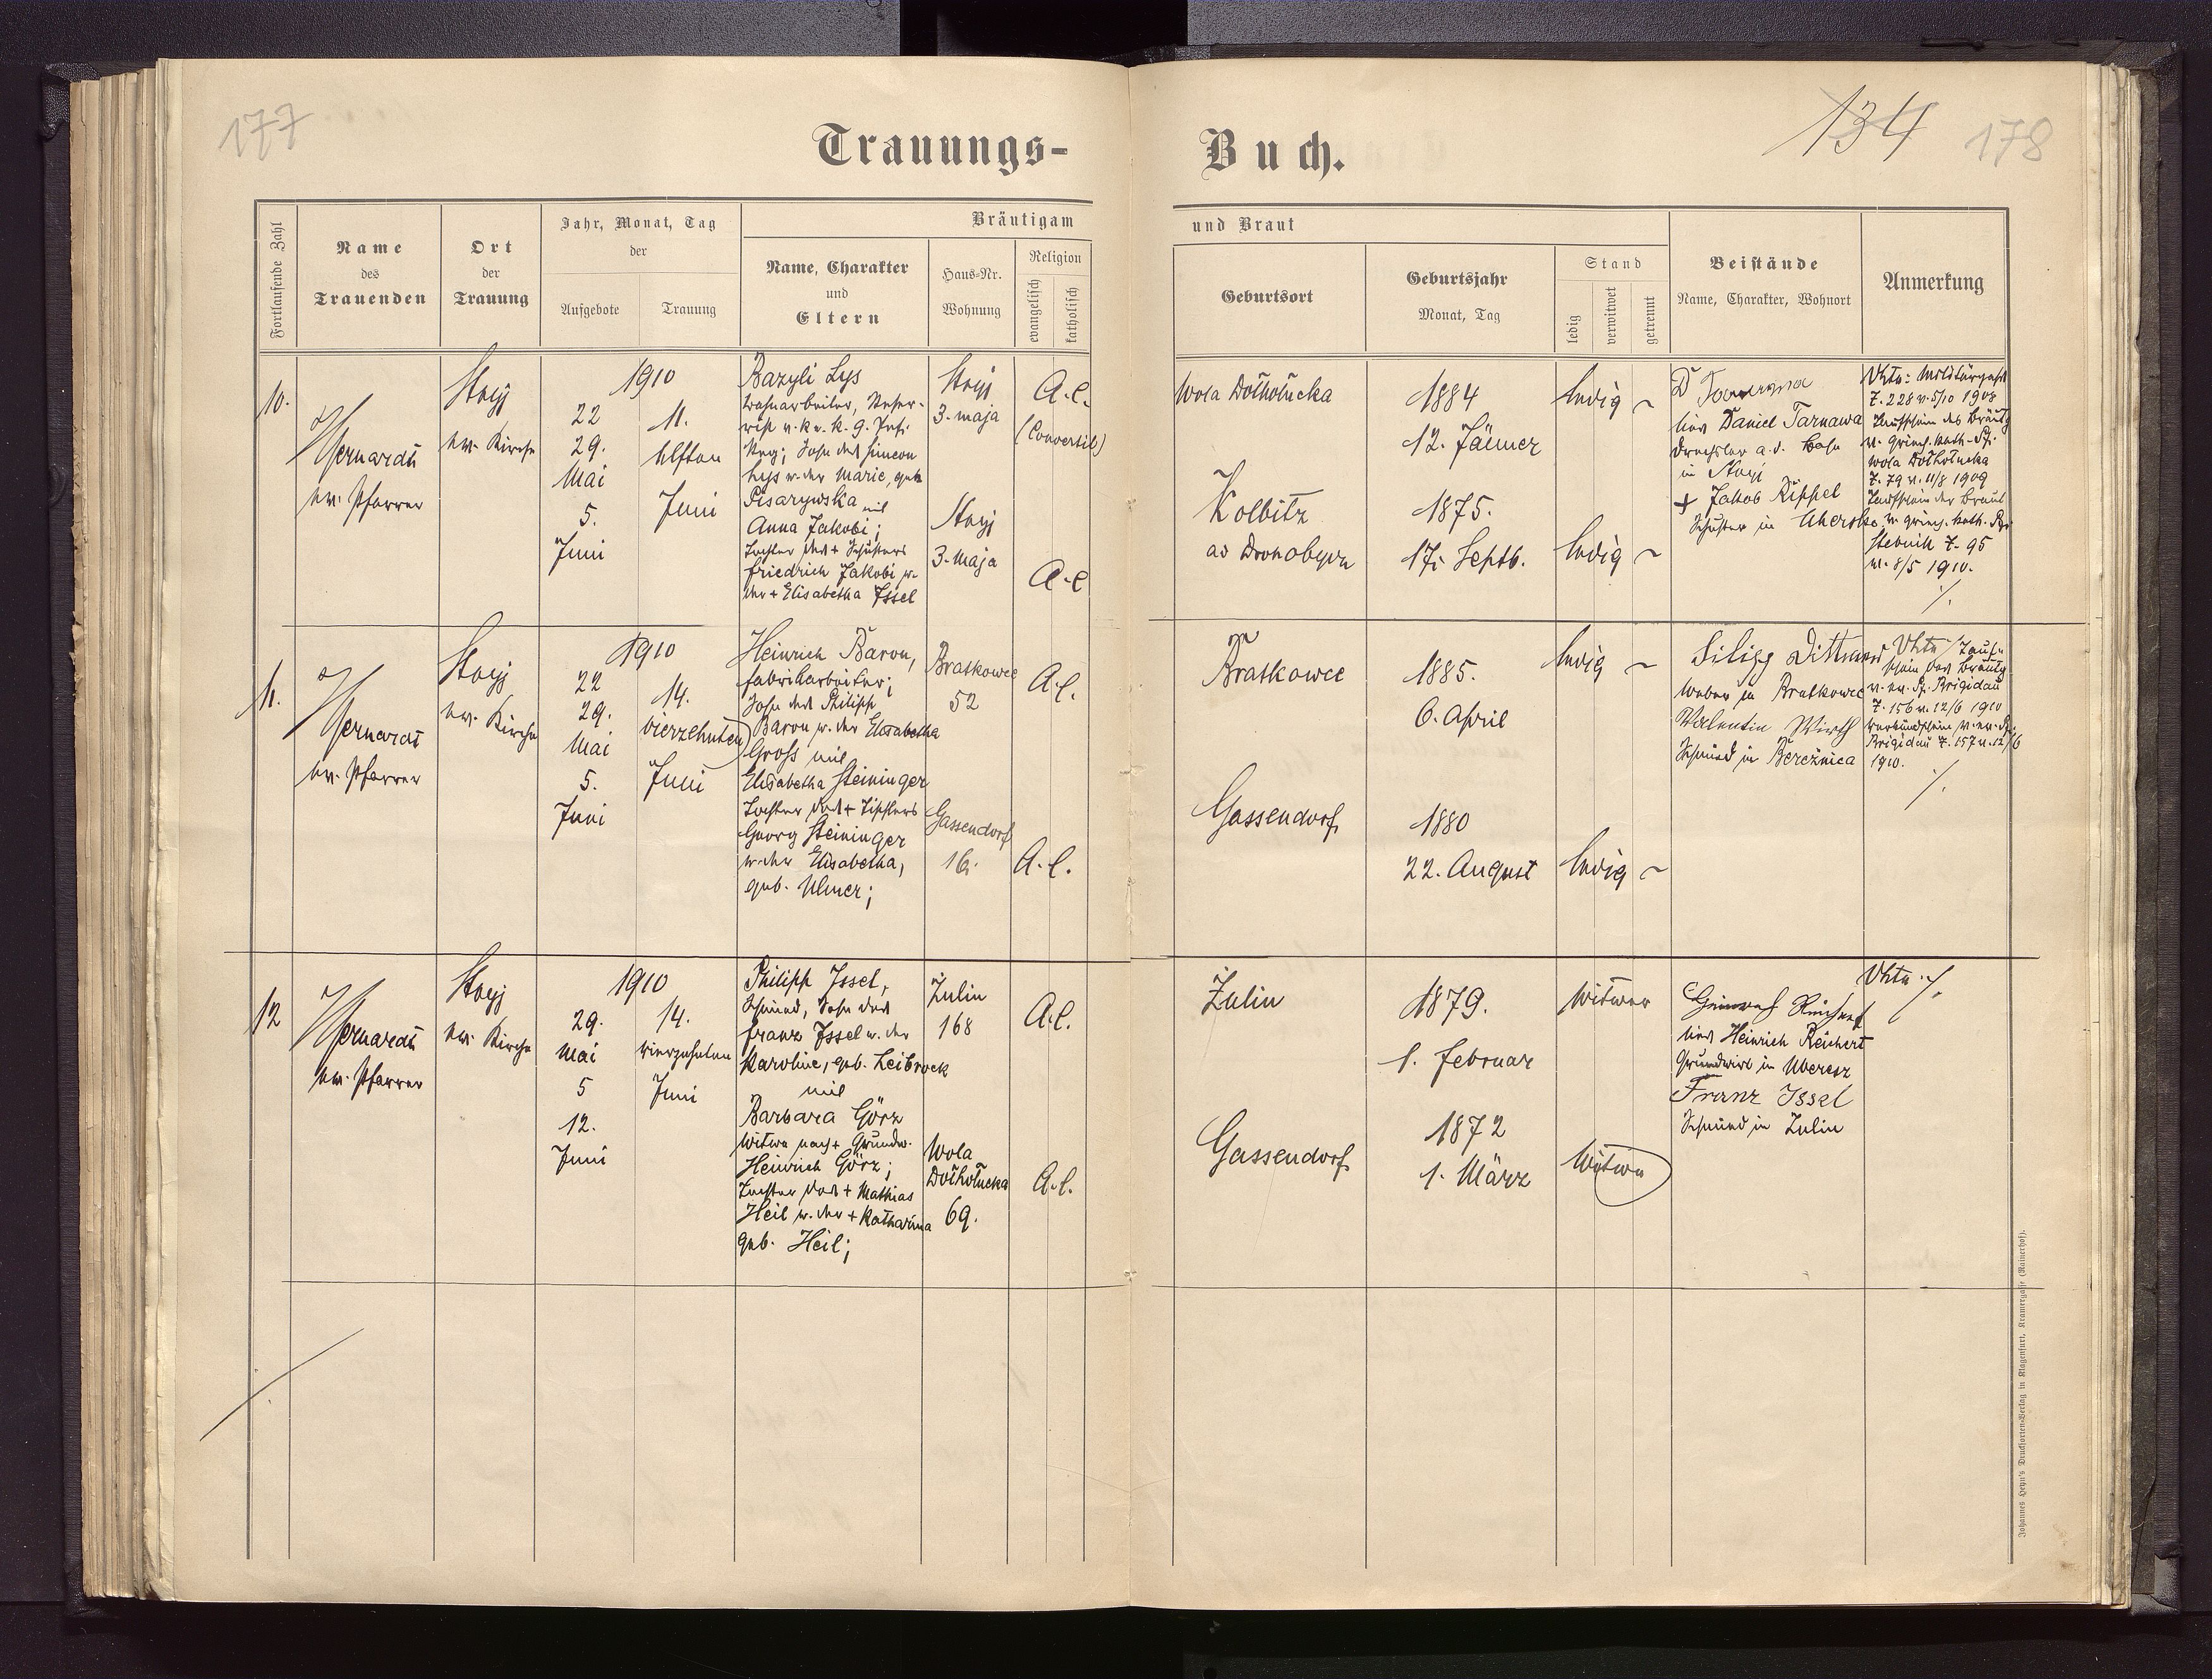 177
134 178
Trauungs-
Buch.
Fortlaufende Zahl
Name
des
Trauenden
Ort
der
Trauung
Jahr, Monat, Tag
der
Aufgebote
Trauung
Bräutigam
Name, Charakter
und
Eltern
Haus-Nr.
Wohnung
Religion
evangelisch
katholisch
und Braut
Geburtsort
Geburtsjahr
Monat, Tag
Stand
ledig
verwitwet
getrennt
Beistände
Name, Charakter, Wohnort
Anmerkung
10.
ev. Pfarrer
Stryj
ev. Kirche
1910
22
29.
Mai
5.
Juni
11.
elften
Juni
Bazyli Lys
Sohn des Simeon
Lys u. der Marie, geb.
Pisarywska mit
Anna Jakobi;
Tochter des + Schusters
Friedrich Jakobi u.
der + Elisabetha Issel
Stryj
3. maja
Stryj
3. Maja
A. C.
(Convertit)
A. C
Wola Dołhołucka
Kolbitz
ad Drohobycz
1884
12. Jänner
1875.
17. Septb.
ledig
ledig
D Tarnawa
Daniel Tarnawa
Drechsler a. d. Bahn
in Stryj
+ Jakob Rippel
Schuster in Uhersko
Z. 228 v. 5/10 1908
Taufschein des Bräutg
v. griech. kath. Pf.
Wola Dołhołucka
Z. 79 v. 11/8 1909
Taufschein der Braut
v. griech. kath. Pf.
Stebnik Z. 95
v. 8/5 1910.
11.
ev. Pfarrer
Stryj
ev. Kirche
1910
22
29.
Mai
5.
Juni
14.
vierzehnten
Juni
Heinrich Baron,
Fabriksarbeiter;
Sohn des Philipp
Baron u. der Elisabetha
Gross mit
Elisabetha Steininger
Tochter des + Tischlers
Georg Steininger
u. der Elisabetha,
geb. Ulmer;
Bratkowce
52
Gassendorf
16.
A. C.
A. C.
Bratkowce
Gassendorf
1885.
6. April
1880
22. August
ledig
ledig
Filipp Dittmard
Weber in Bratkowce
Valentin Wirth
Schmied in Bereźnica
Tauf-
schein des Bräutg
v. ev. Pf. Brigidau
Z. 156 v. 12/6 1910
Verkündschein v. ev. Pf.
Brigidau Z. 157 v. 12/6
1910.
12
ev. Pfarrer
Stryj
ev. Kirche
1910
29.
Mai
5
12.
Juni
14.
vierzehnten
Juni
Philipp Issel,
Schmied, Sohn des
Franz Issel u. der
Karoline, geb. Leibrock
mit
Barbara Görz
Witwe nach + Grundw.
Heinrich Görz;
Tochter des + Mathias
Heil u. der + Katharina
geb. Heil;
Zulin
168
Wola
Dołhołucka
69.
A. C.
A. C.
Zulin
Gassendorf
1879.
1. Februar
1872
1. März
Witwer
Witwe
Heinrich Reichert
Grundwirt in Uberesz
Franz Issel
Schmied in Zulin
Johannes Heyn's Drucksorten-Verlag in Klagenfurt, Kramergasse (Rainerhof).